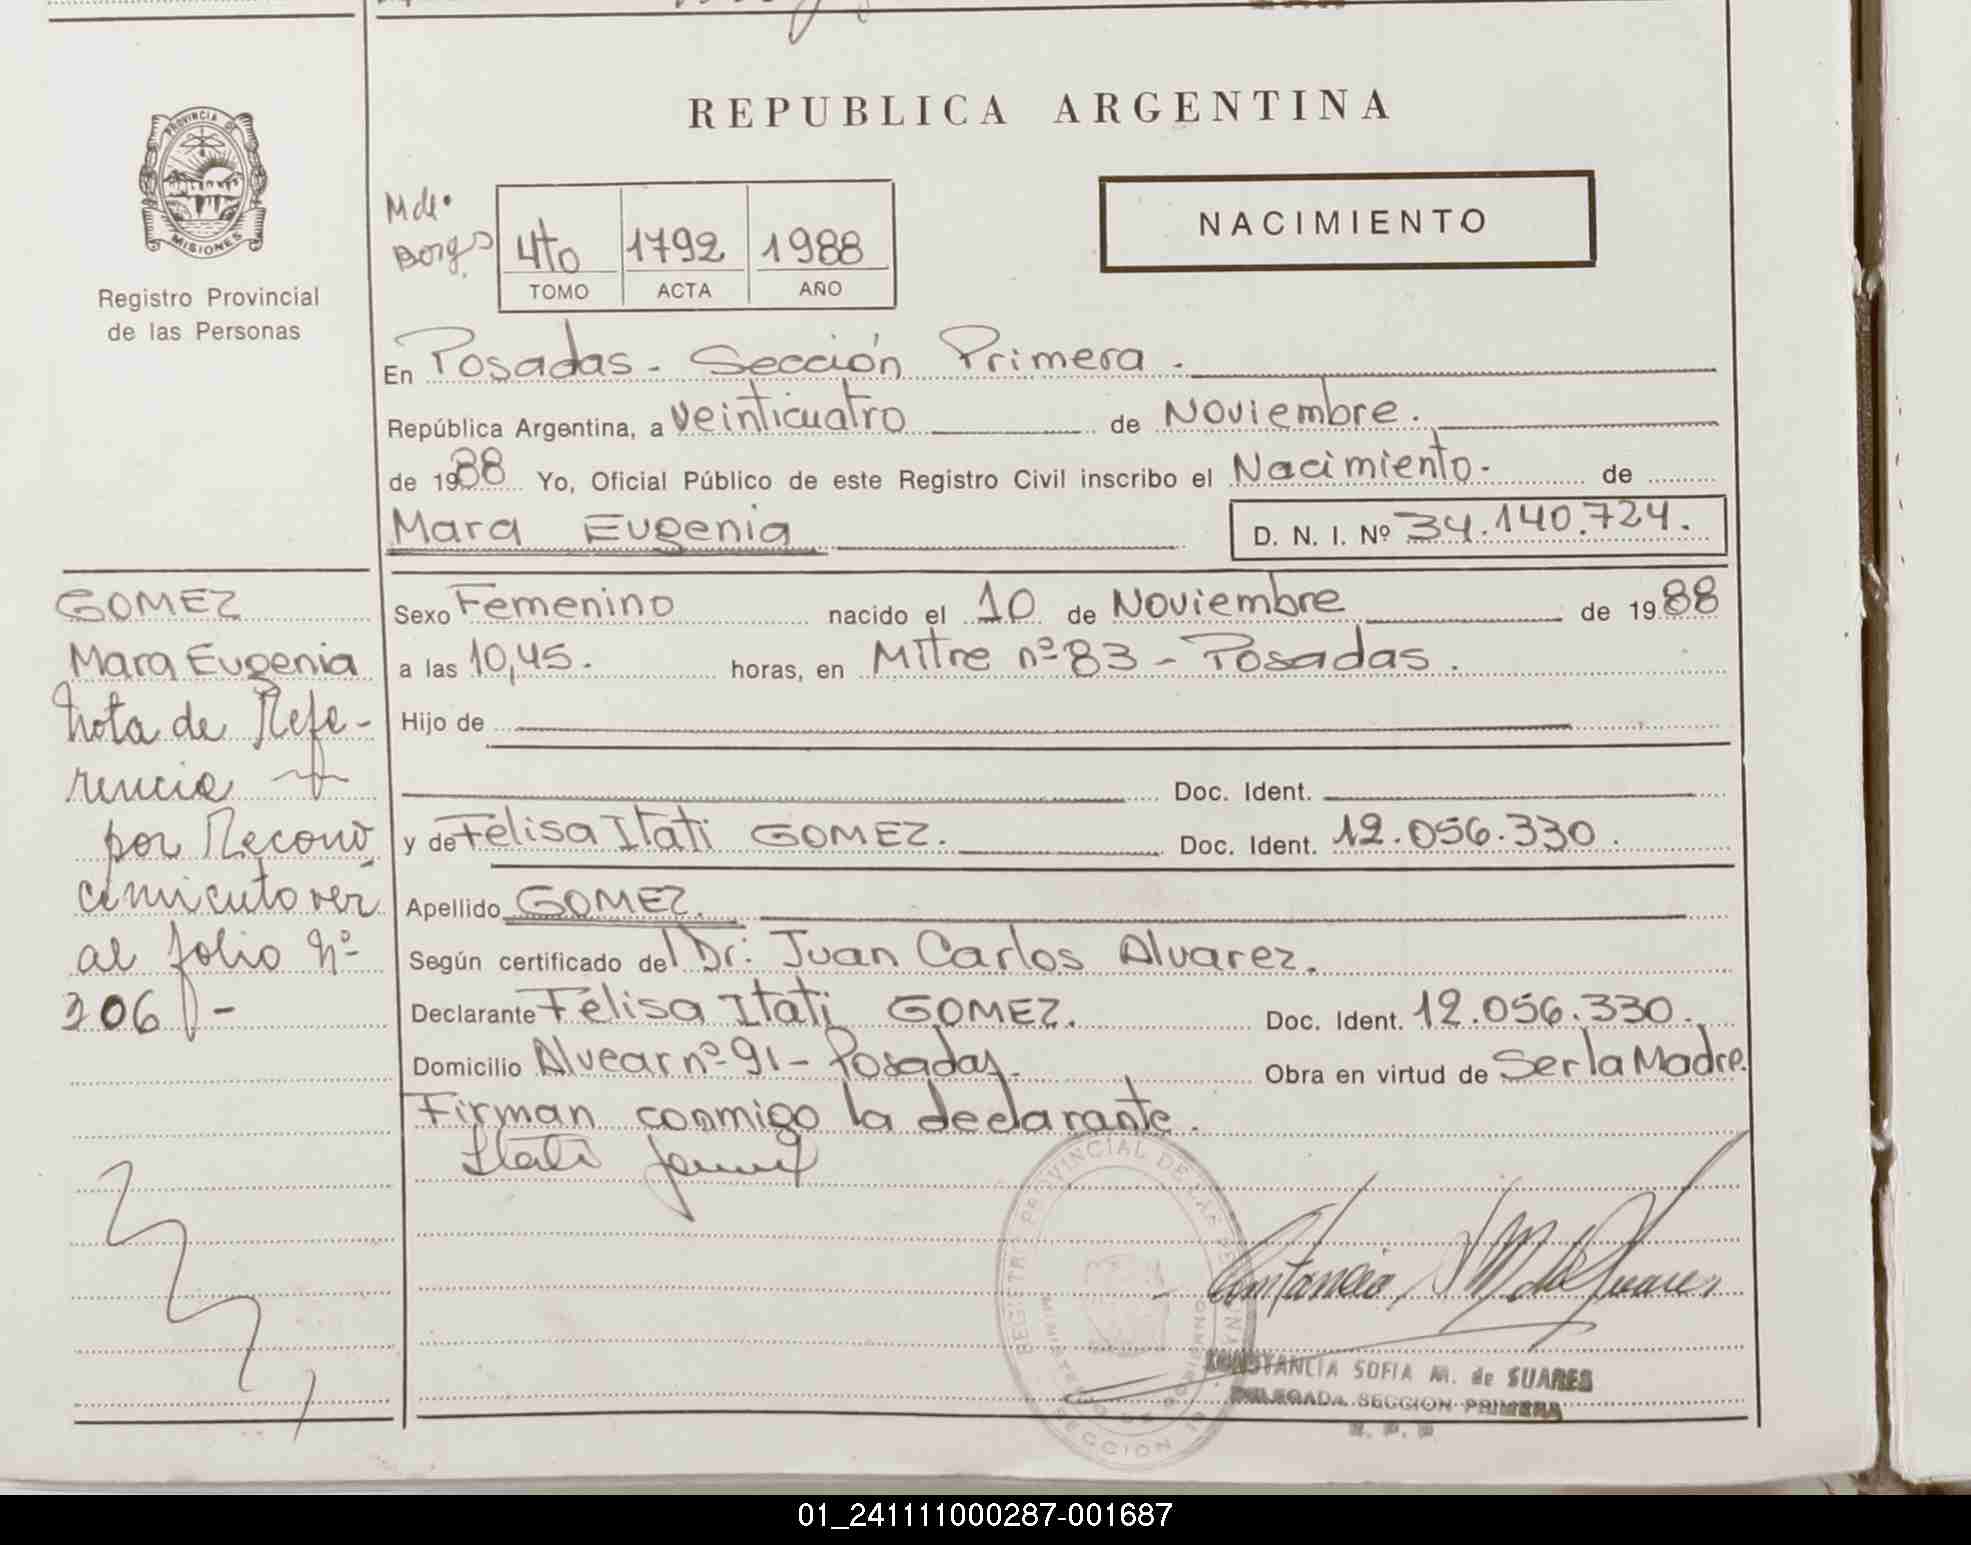 PROVINCIA DE
MISIONES
Registro Provincial
de las Personas
REPUBLICA ARGENTINA
NACIMIENTO
4to 1792 1988
TOMO ACTA AÑO
En Posadas - Sección Primera.
República Argentina, a veinticuatro de Noviembre.
de 1988 Yo, Oficial Público de este Registro Civil inscribo el Nacimiento. de
Mara Eugenia D. N. I. Nº 34.140.724.
Sexo Femenino nacido el 10 de Noviembre de 1988
a las 10,45. horas, en Mitre nº 83 - Posadas.
Hijo de
Doc. Ident.
y de Felisa Itati GOMEZ. Doc. Ident. 12.056.330.
Apellido GOMEZ.
Según certificado del Dr. Juan Carlos Alvarez.
Declarante Felisa Itati GOMEZ. Doc. Ident. 12.056.330.
Domicilio Alvear nº 91 - Posadas. Obra en virtud de Ser la Madre.
Firman conmigo la declarante.
Itati
GOMEZ
Mara Eugenia
Nota de Refe-
rencia
por Recono
cimiento ver
al folio Nº
206 -
REGISTRO PROVINCIAL DE LAS PERSONAS
MINISTERIO DE GOBIERNO
SECCION 1ª
CONSTANCIA SOFIA M. de SUARES
DELEGADA SECCION PRIMERA
R. P. P
01_241111000287-001687